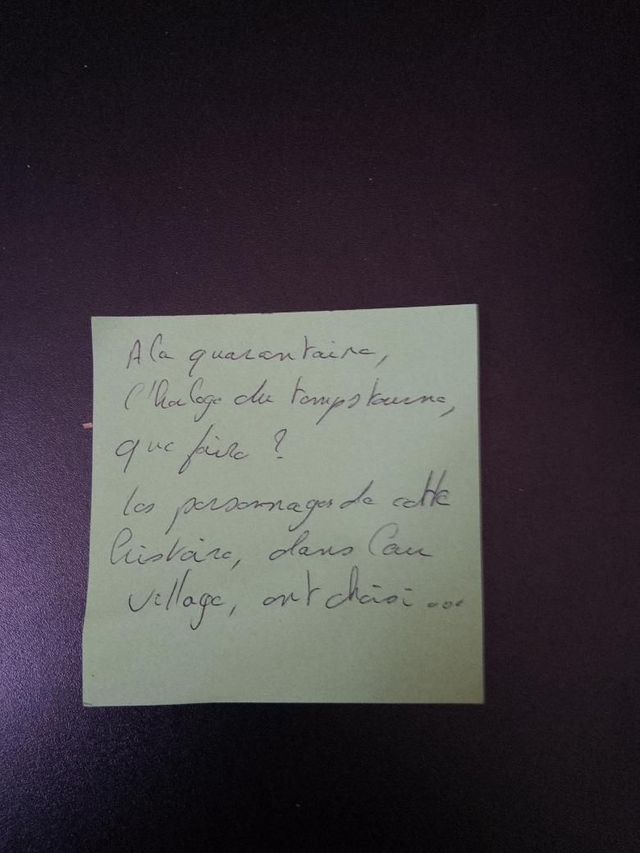 A la quarantaine,
l'horloge du temps tourne,
que faire ?
Les personnages de cette
histoire, dans leur
village, ont choisi ...